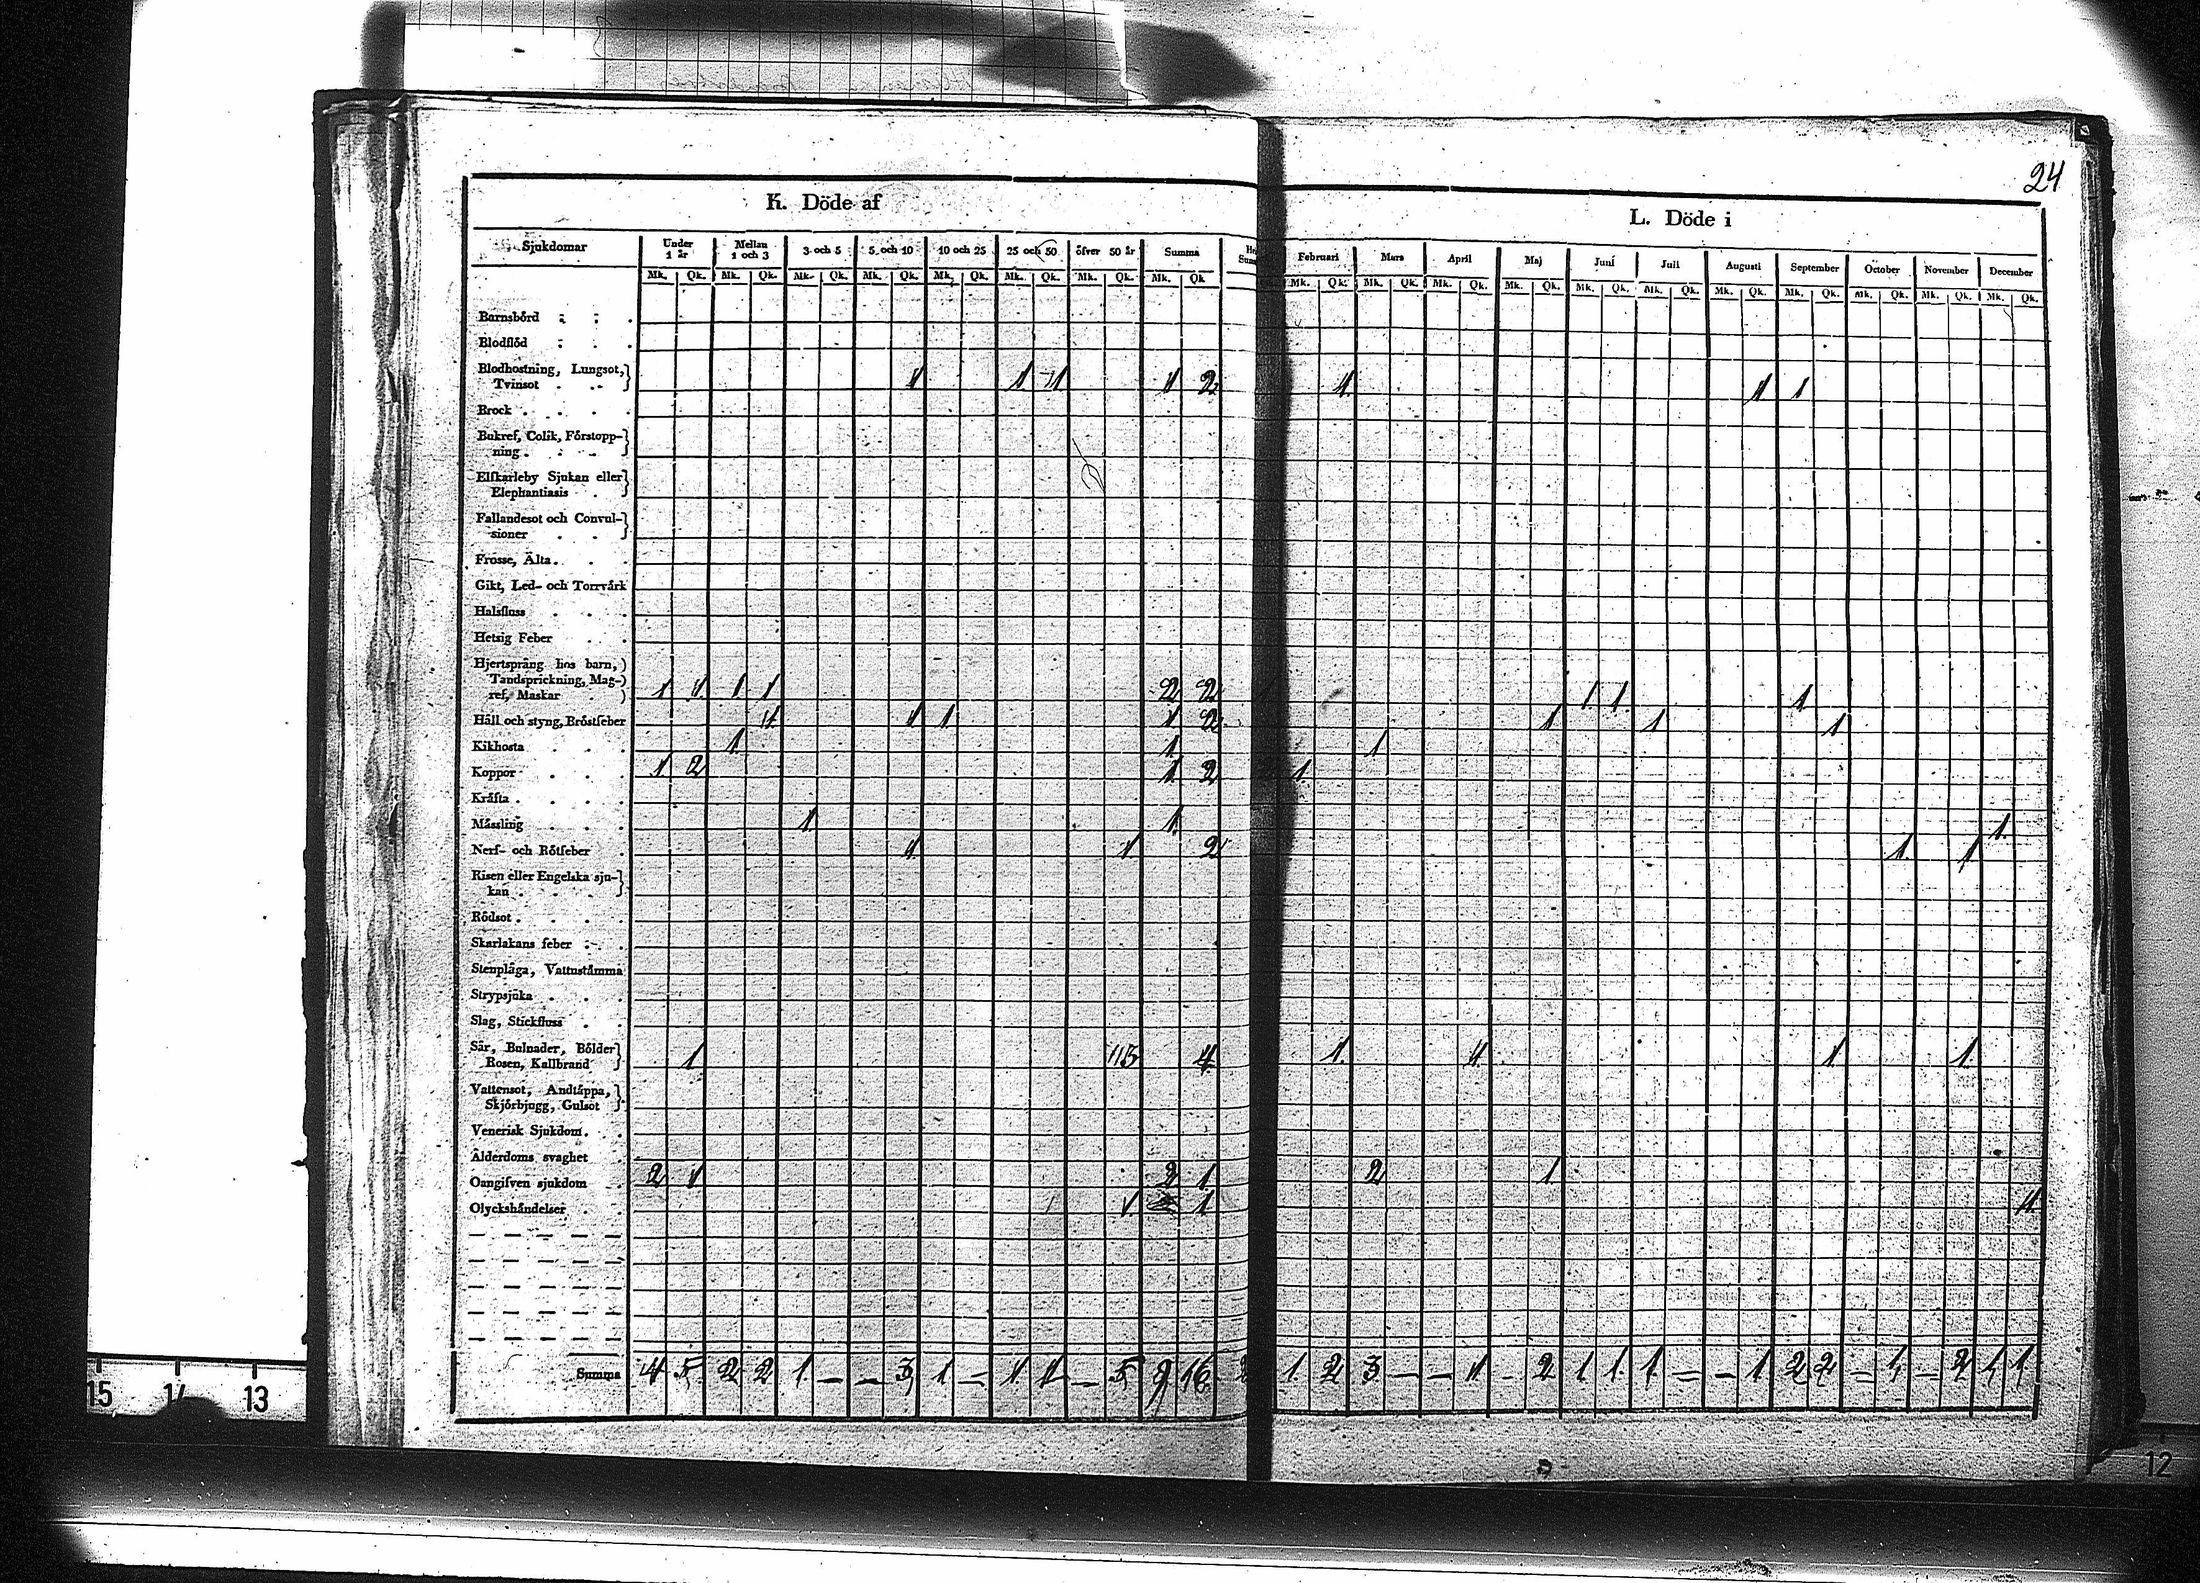 24
K. Döde af
L. Döde i
Sjukdomar Under 1 år Mellan 1 och 3 3 och 5 5 och 10 10 och 25 25 och 50 öfver 50 år Summa
Februari Mars April Maj Juni Juli Augusti September October November December
Mk. Qk. Mk. Qk. Mk. Qk. Mk. Qk. Mk. Qk. Mk. Qk. Mk. Qk. Mk. Qk
Mk. Qk. Mk. Qk. Mk. Qk. Mk. Qk. Mk. Qk. Mk. Qk. Mk. Qk. Mk. Qk. Mk. Qk. Mk. Qk. Mk. Qk.
Barnsbörd
Blodflöd
Blodhostning, Lungsot,
Tvinsot 1 1 1 1 2 1 1 1
Brock
Bukref, Colik, Förstopp-
ning
Elfkarleby Sjukan eller
Elephantiasis
Fallandesot och Convul-
sioner
Frosse, Älta
Gikt, Led- och Torrvärk
Halsfluss
Hetsig Feber
Hjertsprång hos barn,
Tandsprickning, Mag-
ref, Maskar 1 1 1 1 2 2 1 1 1
Håll och styng, Bröstfeber 1 1 1 1 2 1 1 1
Kikhosta 1 1 1
Koppor 1 2 1 2 1
Kräfta
Mässling 1 1 1
Nerf- och Rötfeber 1 1 2 1 1
Risen eller Engelska sju-
kan
Rödsot
Skarlakans feber
Stenplåga, Vattnstämma
Strypsjuka
Slag, Stickfluss
Sår, Bulnader, Bölder
Rosen, Kallbrand 1 3 4 1 1 1 1
Vattensot, Andtäppa,
Skjörbjugg, Gulsot
Venerisk Sjukdom
Ålderdoms svaghet
Oangifven sjukdom 2 1 2 1 2 1
Olyckshändelser 1 1 1
Summa 4 5 2 2 1 – – 3 1 – 1 1 – 5 9 16 2
1 2 3 – – 1 – 2 1 1 1 – – 1 2 2 – 1 – 2 1 1
15 14 13
12